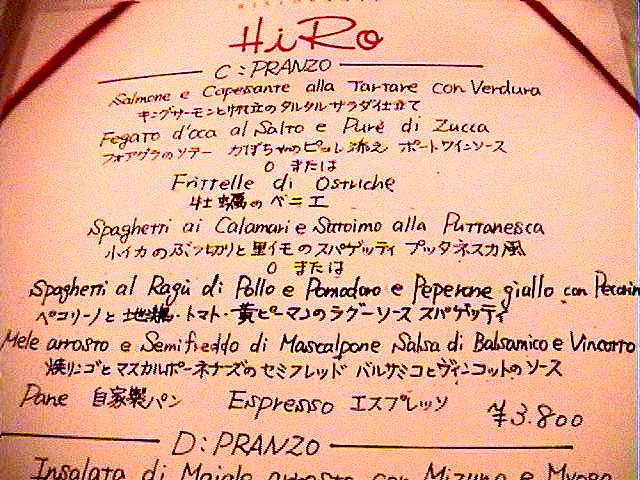 HiRo
C:PRANZO
Salmone e Capesante alla Tartare con Verdura
キングサーモンと帆立のタルタル サラダ仕立て
Fegato d'oca al Salto e Purè di Zucca
フォアグラのソテー かぼちゃのピュレ添え ポートワインソース
O または
Frittelle di Ostriche
牡蠣のベニエ
Spaghetti ai Calamari e Satoimo alla Puttanesca
小イカのぶつ切りと里イモのスパゲッティ プッタネスカ風
O または
Spaghetti al Ragù di Pollo e Pomodoro e Peperone giallo con Pecorin
ペコリーノと地鶏・トマト・黄ピーマンのラグーソース スパゲッティ
Mele arrosto e Semifreddo di Mascalpone Salsa di Balsamico e Vincotto
焼リンゴとマスカルポーネチーズのセミフレッド バルサミコとヴィンコットのソース
Pane 自家製パン Espresso エスプレッソ ¥3.800
D:PRANZO
Insalata di Maiale arrosto con Mizuna e Myoga